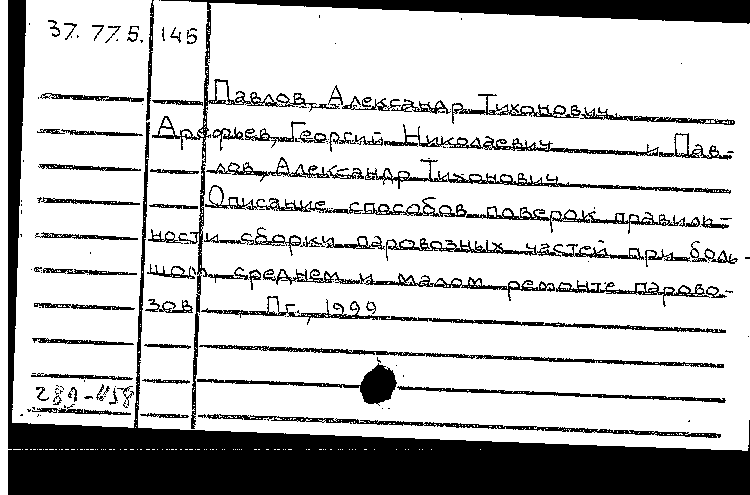 37.77.5. 145
Павлов, Александр Тихонович
Арефьев, Георгий Николаевич и Пав-
лов, Александр Тихонович
Описание способов поверок правиль-
ности сборки паровозных частей при боль-
шом, среднем и малом ремонте парово-
зов Пг., 1999
289-458